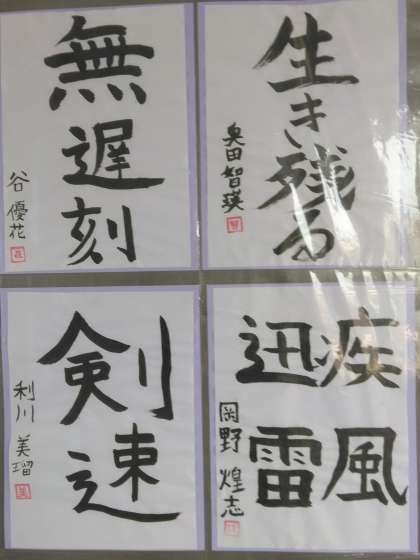 生き残る
奥田智瑛
無遅刻
谷優花
疾風
迅雷
岡野煌志
剣速
利川美瑠